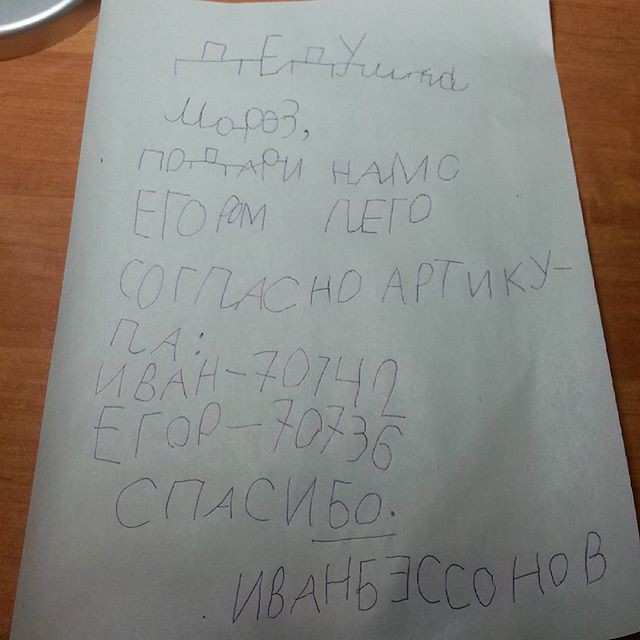 ДЕДУшка
Мороз,
ПОДАРИ НАМС
ЕГОРОМ ЛЕГО
СОГЛАСНО АРТИКУ-
ЛА:
ИВАН-70742
ЕГОР-70736
СПАСИБО.
ИВАНБЕССОНОВ